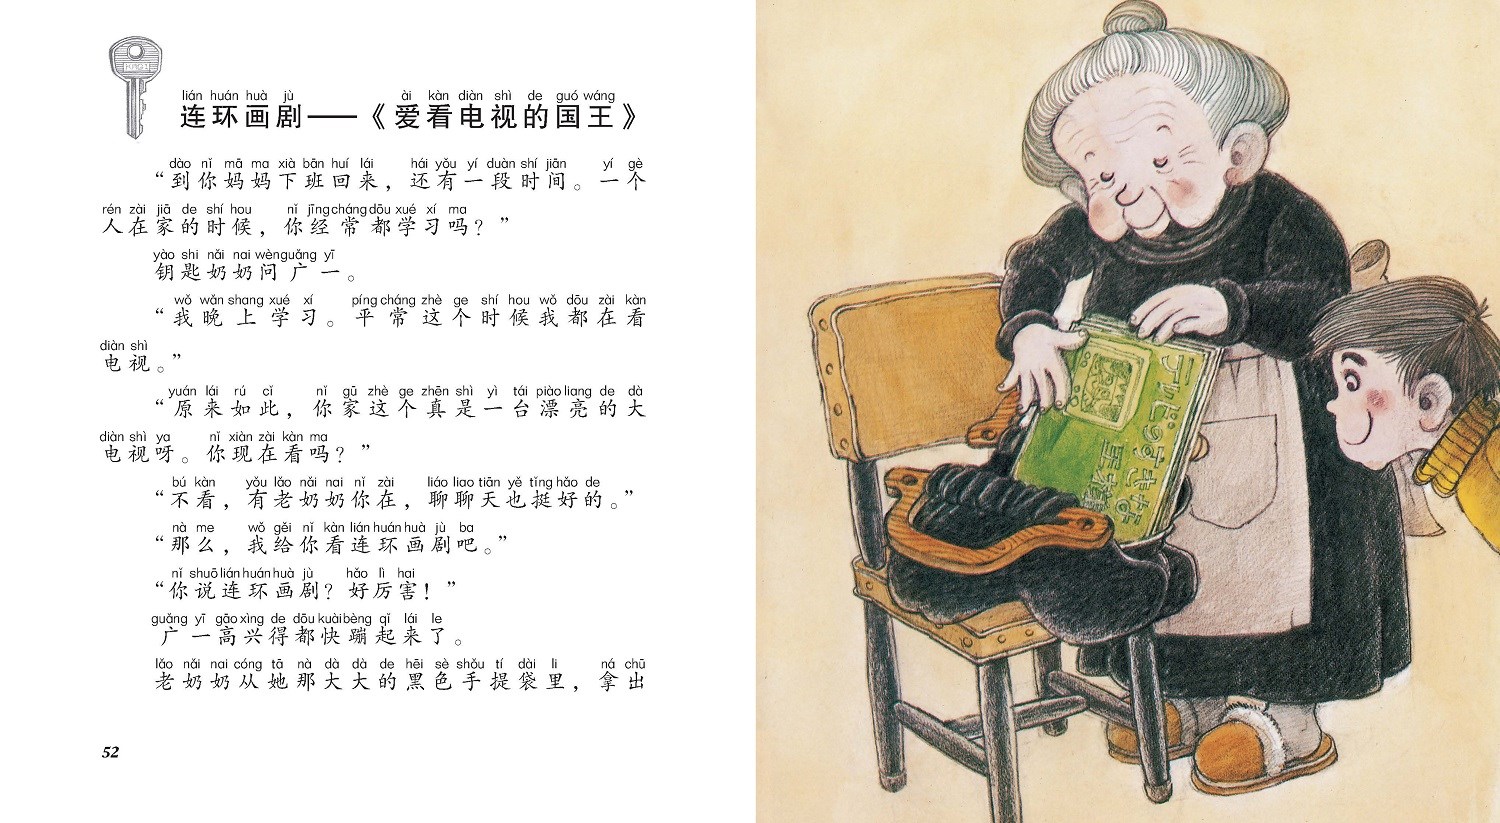 KAGI
lián huán huà jù ài kàn diàn shì de guó wáng
连环画剧——《爱看电视的国王》
dào nǐ mā ma xià bān huí lái hái yǒu yí duàn shí jiān yí gè
“到你妈妈下班回来，还有一段时间。一个
rén zài jiā de shí hou nǐ jīng cháng dōu xué xí ma
人在家的时候，你经常都学习吗？”
yào shi nǎi nai wèn guǎng yī
钥匙奶奶问广一。
wǒ wǎn shang xué xí píng cháng zhè ge shí hou wǒ dōu zài kàn
“我晚上学习。平常这个时候我都在看
diàn shì
电视。”
yuán lái rú cǐ nǐ gū zhè ge zhēn shì yì tái piào liang de dà
“原来如此，你家这个真是一台漂亮的大
diàn shì ya nǐ xiàn zài kàn ma
电视呀。你现在看吗？”
bú kàn yǒu lǎo nǎi nai nǐ zài liáo liao tiān yě tǐng hǎo de
“不看，有老奶奶你在，聊聊天也挺好的。”
nà me wǒ gěi nǐ kàn lián huán huà jù ba
“那么，我给你看连环画剧吧。”
nǐ shuō lián huán huà jù hǎo lì hai
“你说连环画剧？好厉害！”
guǎng yī gāo xìng de dōu kuài bèng qǐ lái le
广一高兴得都快蹦起来了。
lǎo nǎi nai cóng tā nà dà dà de hēi sè shǒu tí dài li ná chū
老奶奶从她那大大的黑色手提袋里，拿出
52
テレビのすきな
王様